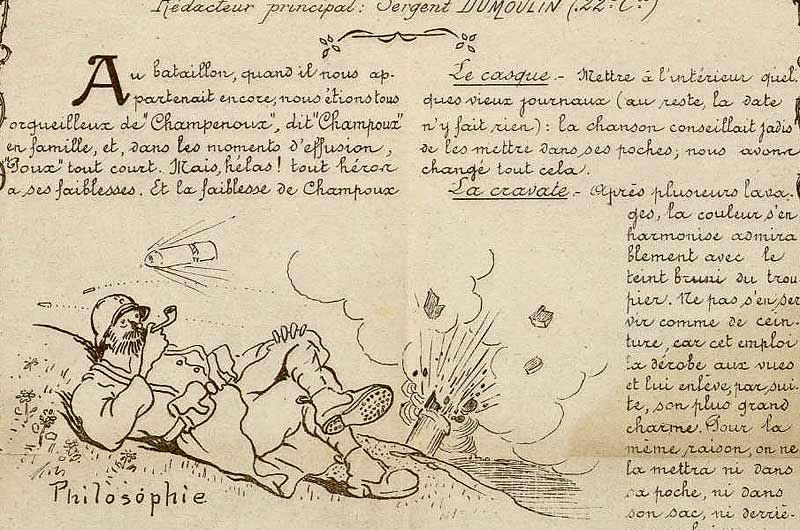 Rédacteur principal: Sergent DUMOULIN (.22e Cie)
Au bataillon, quand il nous ap-
partenait encore, nous étions tous
orgueilleux de "Champenoux", dit "Champoux"
en famille, et, dans les moments d'effusion,
"Poux" tout court. Mais, hélas! tout héros
a ses faiblesses. Et la faiblesse de Champoux
Philosophie
Le casque.- Mettre à l'intérieur quel-
ques vieux journaux (au reste, la date
n'y fait rien): la chanson conseillait jadis
de les mettre dans ses poches; nous avons
changé tout cela.
La cravate.- Après plusieurs lava-
ges, la couleur s'en
harmonise admira
blement avec le
teint bruni du trou
pier. Ne pas s'en ser
vir comme de cein-
ture, car cet emploi
la dérobe aux vues
et lui enlève, par sui-
te, son plus grand
charme. Pour la
même raison, on ne
la mettra ni dans
sa poche, ni dans
son sac, ni derriè-